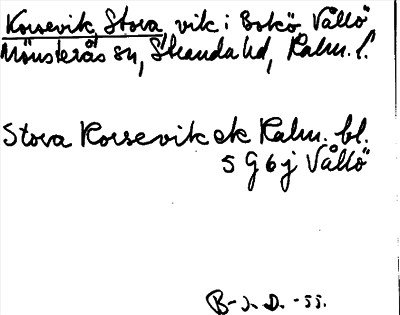 Korsevik, Stora, vik i Bokö Vållö
Mönsterås sn, Stranda hd, Kalm. l.
Stora Korsevik ek Kalm. bl.
5 G 6 j Vållö
B-J. D. -55.